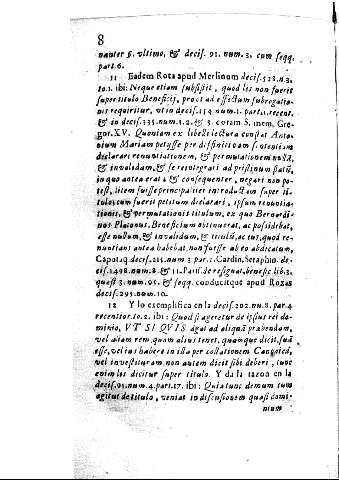 8
nanter §. ultimo, & decis. 91. num. 3. cum seqq.
part. 6.
11 Eadem Rota apud Merlinum decis. 528. n. 3.
to. 1. ibi: Neque etiam subsistit, quod lis non fuerit
super titulo Beneficij, prout ad effectum subrogatio-
nis requiritur, vt in decis. 154 num. 1. part. 1. recent.
& in decis. 335. num. 1. 2. & 3. coram S. mem. Gre-
gor. XV. Quoniam ex libelli lectura constat Anto-
nium Mariam petysse per diffinitivam sententiam
declarari renuntiationem, & permutationem nullã,
& invalidam, & se reintegrari ad pristinum statũ,
in quo antea erat & consequenter, negari non po-
test, litem fuisse principaliter introductam super ti-
tulo; cum fuerit petitum declarari, ipsum renuntia-
tionis, & permutationis titulum, ex quo Bernardi-
nus Platonus, Beneficium obtinuerat, ac possidebat,
esse nullum, & invalidum, & titulũ, ac ius, quod re-
nuntians antea habebat, non fuisse ab eo abdicatum,
Capotaq; decis. 215. num 3 par. 1. Cardin. Seraphin. de-
cis. 1498. num. 8. & 11. Paris. de resignat. benefic. lib. 3.
quæst 3. num. 95. & seqq. conducitque apud Roxas
decis. 295. num. 10.
12 Y lo exemplifica en la decis. 202. nu. 8. par. 4
recentior. to. 2. ibi: Quod si ageretur de ipsius rei do-
minio, VT SI QVIS agat ad aliquã præbendam,
vel aliam rem, quam alius tenet, quamque dicit, suã
esse, vel ius habere in illa per collationem Canonicã,
vel investituram non autem dicit sibi deberi, tunc
enim lis dicitur super titulo. Y da la razon en la
decis. 91. num. 4. part. 17. ibi: Quia tunc demum tum
agitur de titulo, veniat in discusionem quasi domi-
nium